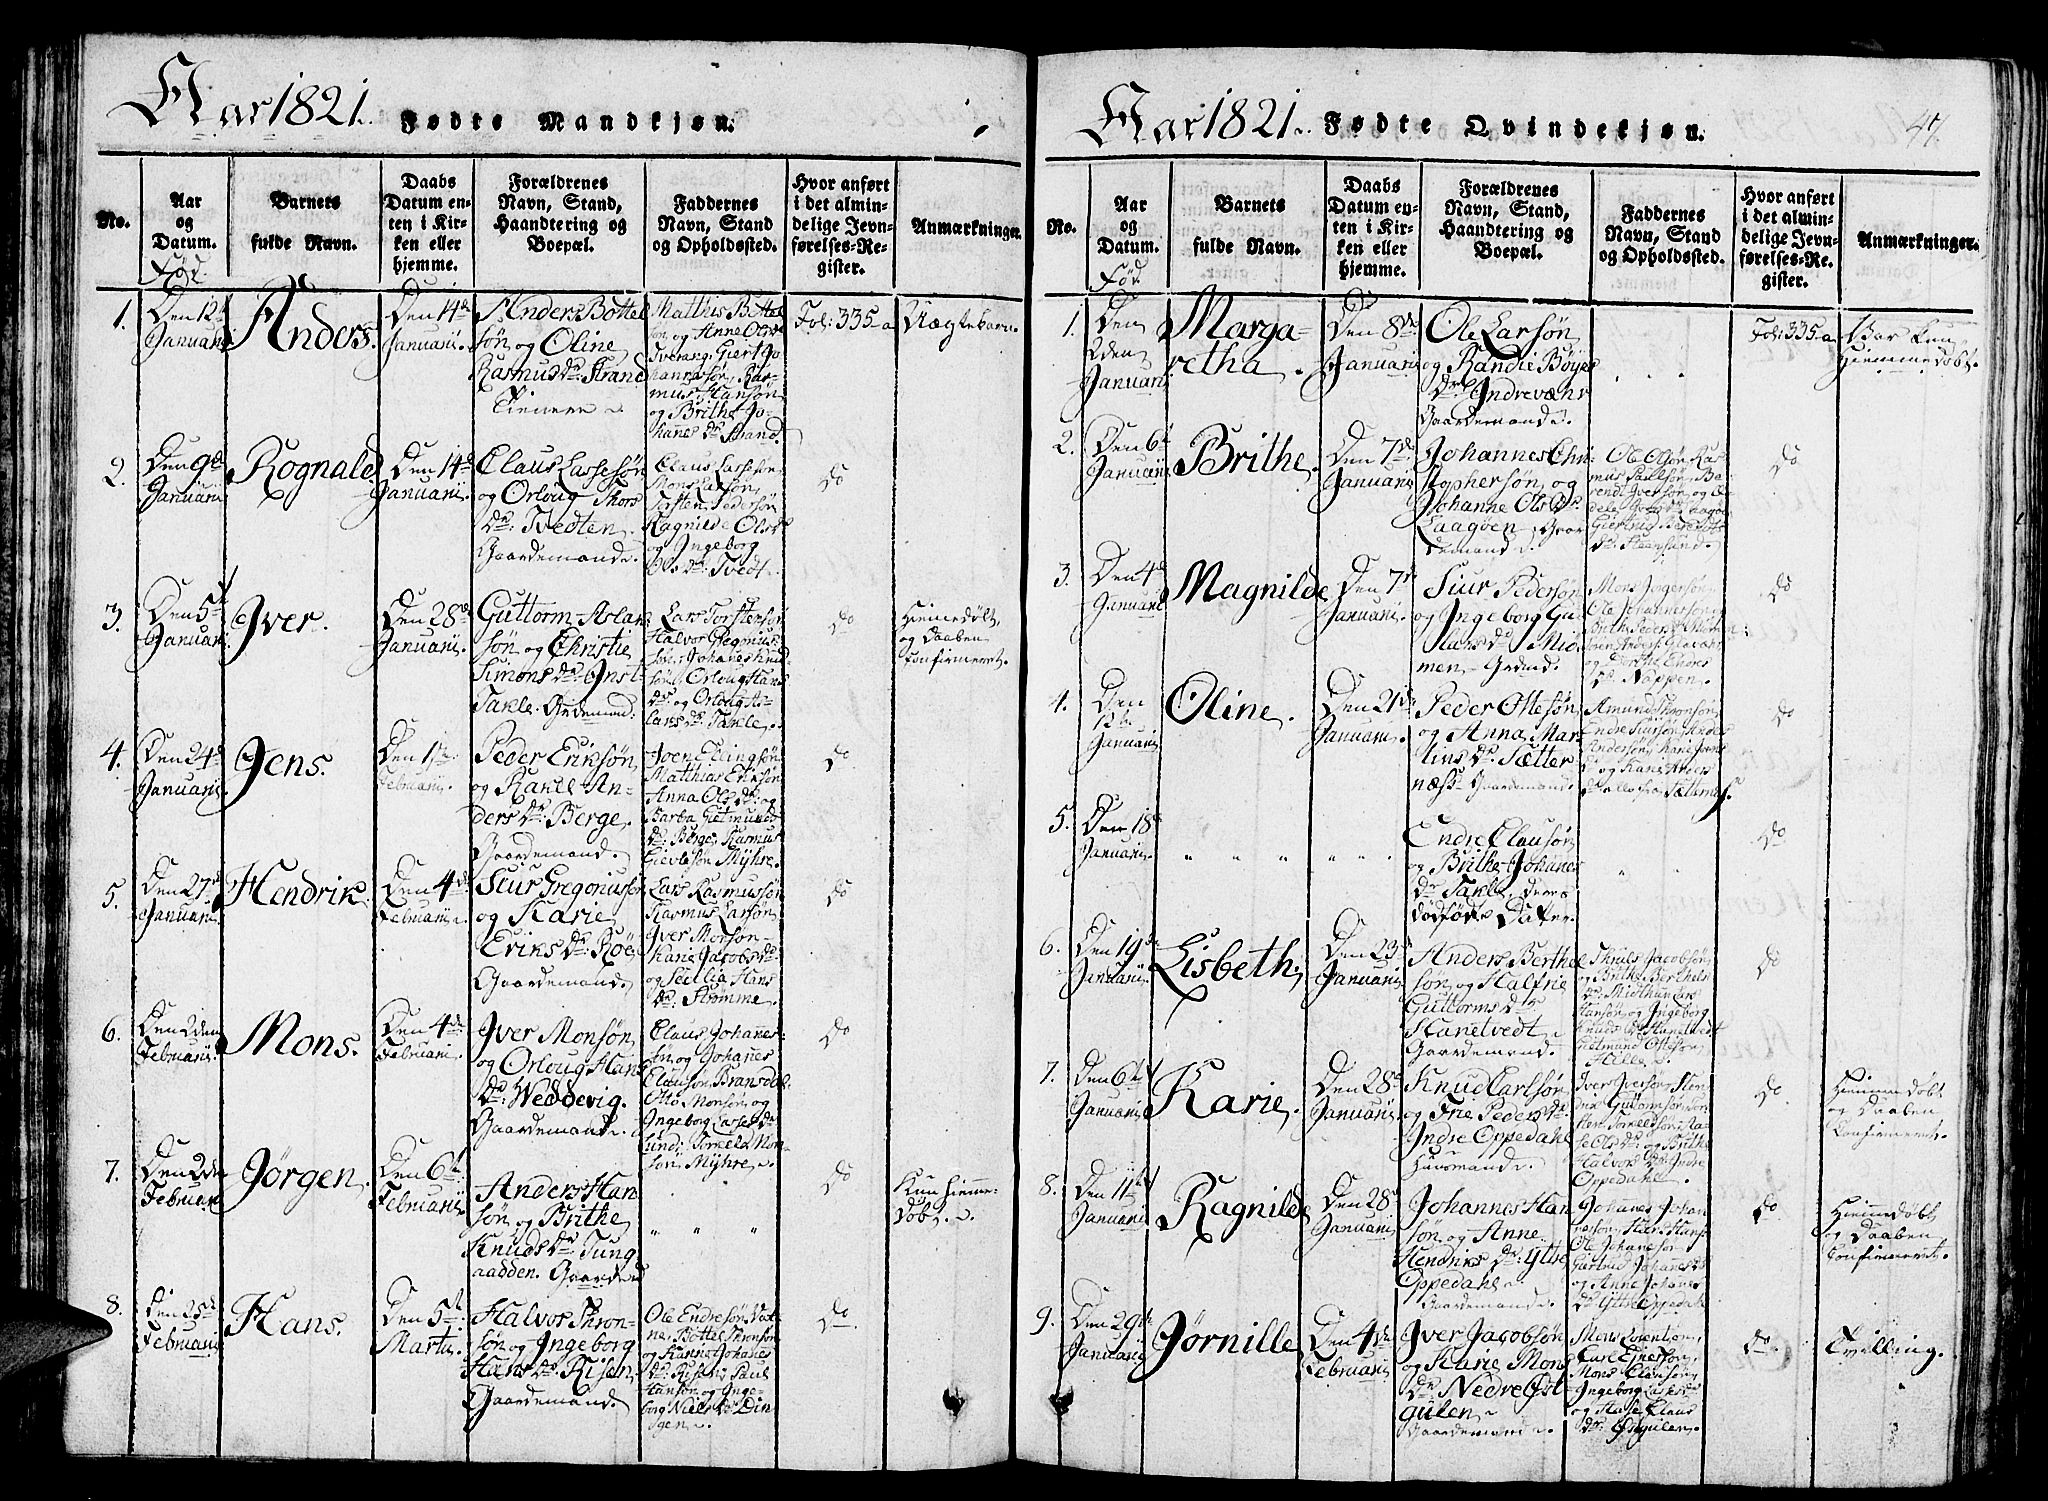 Aar 1821. Fødte Mandkjøn.
No.
Aar og Datum.
Fød.
Barnets fulde Navn.
Daabs Datum enten i Kirken eller hjemme.
Forældrenes Navn, Stand, Haandtering og Boepæl.
Faddernes Navn, Stand og Opholdssted.
Hvor anført i det almindelige Jevnførelses-Register.
Anmærkninger.
1.
Den 12te
Januarii
Anders.
Den 14de
Januarii.
Anders Bottel
søn og Oline
Rasmus Dr: Strand
Tienere
Matthis Bottel
søn og Anne Olsdr
Tverang: Giert Jo
hannessøn, Ras-
mus Hansøn
og Brithe Jo-
hanes Dr Strand.
Fol: 335-a
Uægte barn.
2.
Den 9de
Januarii.
Rognald
Den 14de
Januarii.
Claus Lassesøn
og Orloug Thors
Dr: Tvedten
Gaardemand.
Claus Lassesøn
Mons Larsøn
Torsten Pedersøn
Ragnilde Ols Dr
og Ingeborg
Ols Dr: Tvedt.
do
3.
Den 5te
Januarii.
Iver.
Den 28de
Januarii.
Guttorm Aslak
søn og Christie
Simons Dr: Inst-
Takle. Grdemand.
Lars Torstensøn
Halvor Gregorius
søn, Johanes Knud
søn, Orloug Hans
Dr og Orloug As-
laks Dr: Takle.
do
Hiemedøbt
og Daaben
Confirmeret.
4.
Den 24de
Januarii.
Jens.
Den 1ste
Februarii.
Peder Eriksøn
og Rakel An-
ders Dr Berge.
Gaardemand.
Iven Ellingsøn
Matthias Eriksøn
Anna Ols Dr: og
Barba Gietmunds
Dr: Berge, Rasmus
Gievlesøn Mÿhre.
do
5.
Den 27de
Januarii.
Hendrik.
Den 4de
Februarii.
Siur Gregoriussøn
og Karie
Eriks Dr: Röe
Gaardemand.
Lars Rasmussøn
Rasmus Larsøn
Iver Morsøn
Karie Jacobs Dr
og Secilia Hans
Dr: Strømme.
do
6.
Den 2den
Februarii.
Mons.
Den 4de
Februarii.
Iver Monsøn
og Orloug Hans
Dr: Weddevig.
Gaardemand.
Claus Johanes-
søn og Johanes
Clausøn Bransdal
Otto Monsøn og
Ingeborg Lasses Dr
Lund; Torkeld Mon-
søn Mÿhre.
do
7.
Den 2den
Februarii
Jørgen.
Den 6te
Februarii.
Anders Han
søn og Brithe
Knuds Dr Tung
aadden. Gaardemd
" " "
do
Kun hieme-
døbt.
8.
Den 25de
Februarii
Hans.
Den 5te
Martii.
Halvor Thron-
søn og Ingeborg
Hans Dr: Risen
Gaardemand.
Ole Endresøn
Bottel Thronsøn
og Hanna Johanes
Dr: Risen; Paul
Hansøn og Inge-
borg Niels Dr Din
gen.
do
Aar 1821. Fødte Qvindekjøn.
47.
No.
Aar og Datum.
Fød.
Barnets fulde Navn.
Daabs Datum enten i Kirken eller hjemme.
Forældrenes Navn, Stand, Haandtering og Boepæl.
Faddernes Navn, Stand og Opholdssted.
Hvor anført i det almindelige Jevnførelses-Register.
Anmærkninger.
1.
Den
2den
Januarii
Marga-
retha.
Den 8de
Januarii
Ole Larsøn
og Randie Böyes
Dr Indrevæhr
Gaardemand.
Fol: 335-a
Var kun
Hiemmedøbt.
2.
Den 6te
Januarii
Brithe.
Den 7de
Januarii.
Johannes Chri
stophersøn og
Johanne Ols Dr.
Laagøen, Gaar
demand.
Ole Olsøn, Ras
mus Paulsøn, Be
rendt Iversøn, og
Laagøen
Giertrug Berendts
Dr: Steensund.
do
3.
Den 4de
Januarii
Magnilde
Den 7de
Januarii.
Siur Pedersøn
og Ingeborg Gu
laks Dr Mid
men-Grend.
Mons Jogersøn,
Ole Johannessøn og
Brithe Peders Dr Midmen;
og Dorthe Thores
Dr Nappen.
do
4.
Den
12te
Januarii
Oline.
Den 21de
Januarii.
Peder Ottesøn
og Anna Mar
tins Dr: Sætter
næss. Gaardemand.
Amund Thronsøn,
Endre Siursøn, Anders
Andersøn, Karie Ivers
Dr og Karie Anders
Dr alle fra Sætternæs.
do
5.
Den 18de
Januarii.
" " " " " "
Endre Clausøn
og Brithe Johanes
Dr Takle, deres
dødfødte Datter.
do
6.
Den 19de
Januarii.
Lisbeth.
Den 23de
Januarii.
Anders Berthel
søn og Halfrie
Guttorms Dr
Hanetvedt
Gaardemand.
Thruls Jacobsøn
og Brithe Berthels
Dr: Midthun; Lars
Hansøn og Ingeborg
Knuds Dr Hanetvedt
Gietmund Ottesøn
Hille.
do
7.
Den 6te
Januarii
Karie.
Den 28de
Januarii
Knud Carlsøn
og Frie Peders Dr
Indre Oppedahl
Huusmand.
Iver Iversøn
Guttormsøn, Tor-
sten Torkeldsøn,
Ols Dr og Brithe
Halvors Dr Indre
Oppedahl.
do.
Hiemmedøbt
og Daaben
Confirmeret.
8.
Den 11te
Januarii
Ragnilde
Den 28de
Januarii
Johannes Han
søn og Anne
Hendriks Dr: Ytre
Oppedahl
Gaardemand.
Johanes Johan
nessøn, Hans Hansøn
Ole Johanesøn
Giertrud Johanes Dr
og Anne Johanes
Dr Ytre Oppedahl
do
Hiemmedøbt
og Daaben
Confirmeret.
9.
Den 29de
Januarii
Jørnille
Den 4de
Februarii
Iver Jacobsøn
og Karie Mons
Dr: Nedre Øst
gulen
Gaardemand.
Mons Lorentsøn,
Carl Ejnersøn,
Mons Clausøn,
Ingeborg Lasses Dr
og Aase Claus
Dr: Østgulen.
do
Tvilling.